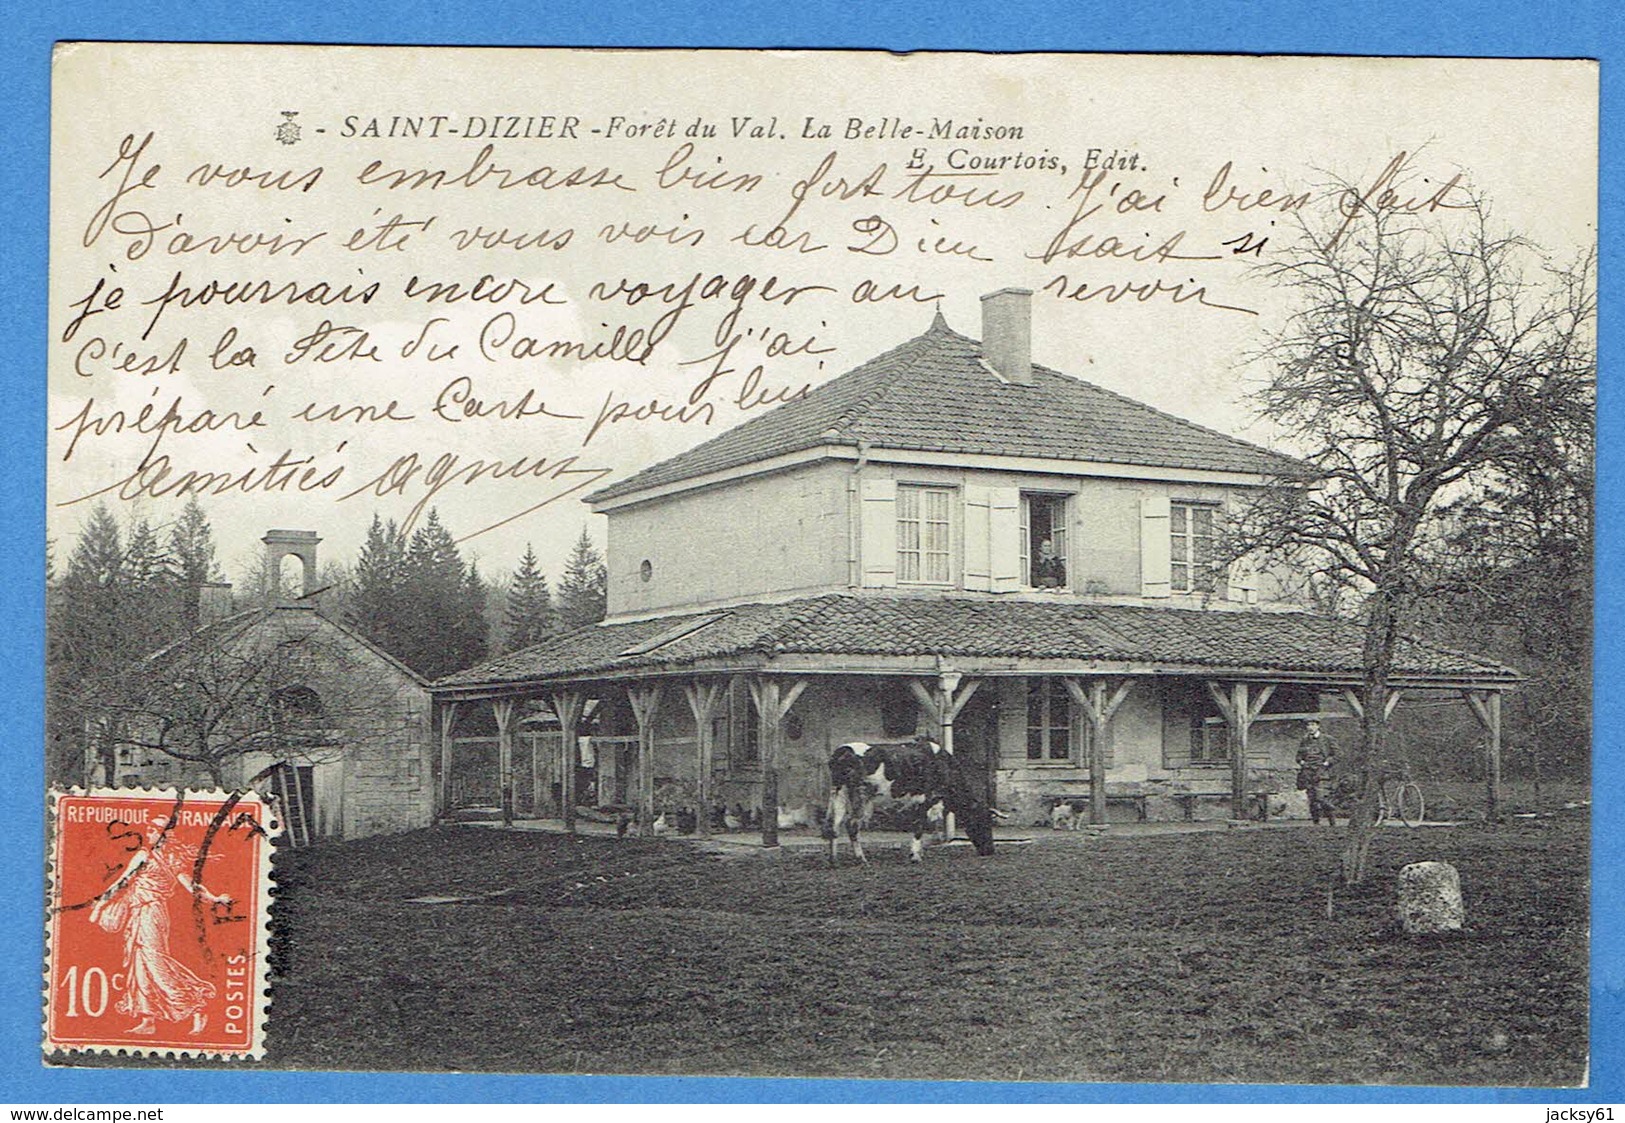 - SAINT-DIZIER - Forêt du Val. La Belle-Maison
E. Courtois, Edit.
Je vous embrasse bien fort tous. J'ai bien fait
d'avoir été vous vois car Dieu sait si
je pourrais encore voyager au revoir
C'est la Fête du Camille j'ai
préparé une Carte pour lui
Amitiés Agnus
REPUBLIQUE FRANÇAISE
10 c
POSTES
delcampe.net
jacksy61